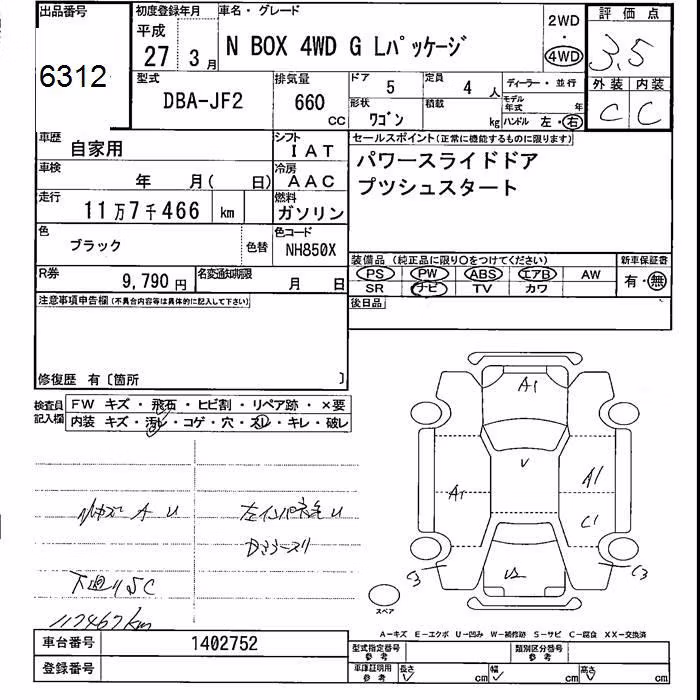 出品番号
6312
初度登録年月
平成
27 3月
車名・グレード
N BOX 4WD G Lパッケージ
2WD
・
4WD
評価点
3.5
外装 内装
C C
型式
DBA-JF2
排気量
660
CC
ドア 5
定員 4人
ディーラー・並行
形状
ワゴン
積載
kg
モデル年式 年
ハンドル 左・右
車歴
自家用
シフト
IAT
車検
年 月( 日)
冷房
AAC
走行
11万7千466 km
燃料
ガソリン
色
ブラック
色替
色コード
NH850X
R券
9,790円
名変通知期限
月 日
セールスポイント(正常に機能するものに限ります)
パワースライドドア
プツシュスタート
装備品(純正品に限り○をつけてください)
PS PW ABS エアB AW
SR ナビ TV カワ
新車保証書
有・無
後日品
注意事項申告欄(不具合内容等は具体的に記入して下さい)
修復歴 有〔箇所 〕
検査員記入欄
FW キズ・飛石・ヒビ割・リペア跡・×要
内装 キズ・汚レ・コゲ・穴・スレ・キレ・破レ
A U
下廻りSC
117467km
A1
V
A1
A1
C1
C3
C3
U2
スペア
A−キズ E−エクボ U−凹み W−補修跡 S−サビ C−腐食 XX−交換済
車台番号
1402752
登録番号
型式指定番号
参考
類別区分番号
参考
車庫証明用
参考
長さ cm
幅 cm
高さ cm